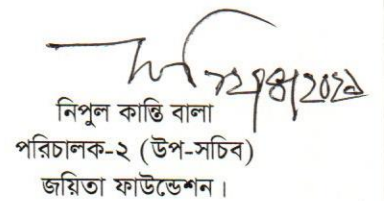 নিপুল কান্তি বালা
পরিচালক-২ (উপ-সচিব)
জয়িতা ফাউন্ডেশন।